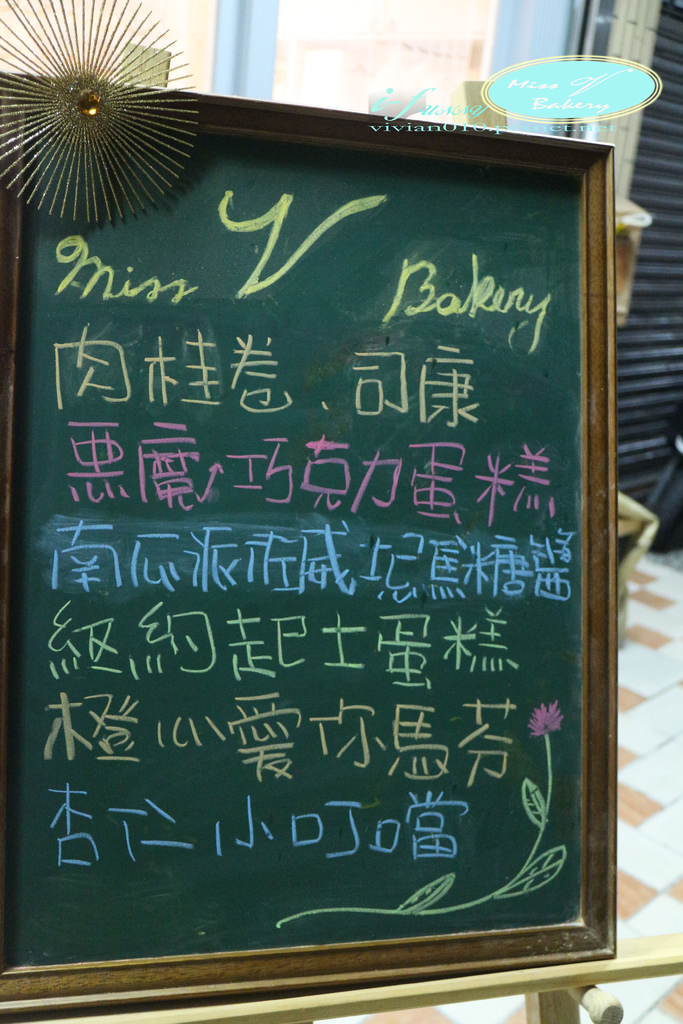 Miss V Bakery
vivian016.pixnet.net
Miss V Bakery
肉桂卷、司康
悪魔巧克力蛋糕
南瓜派佐威士忌焦糖醬
紐約起士蛋糕
橙心愛你馬芬
杏仁小叮噹